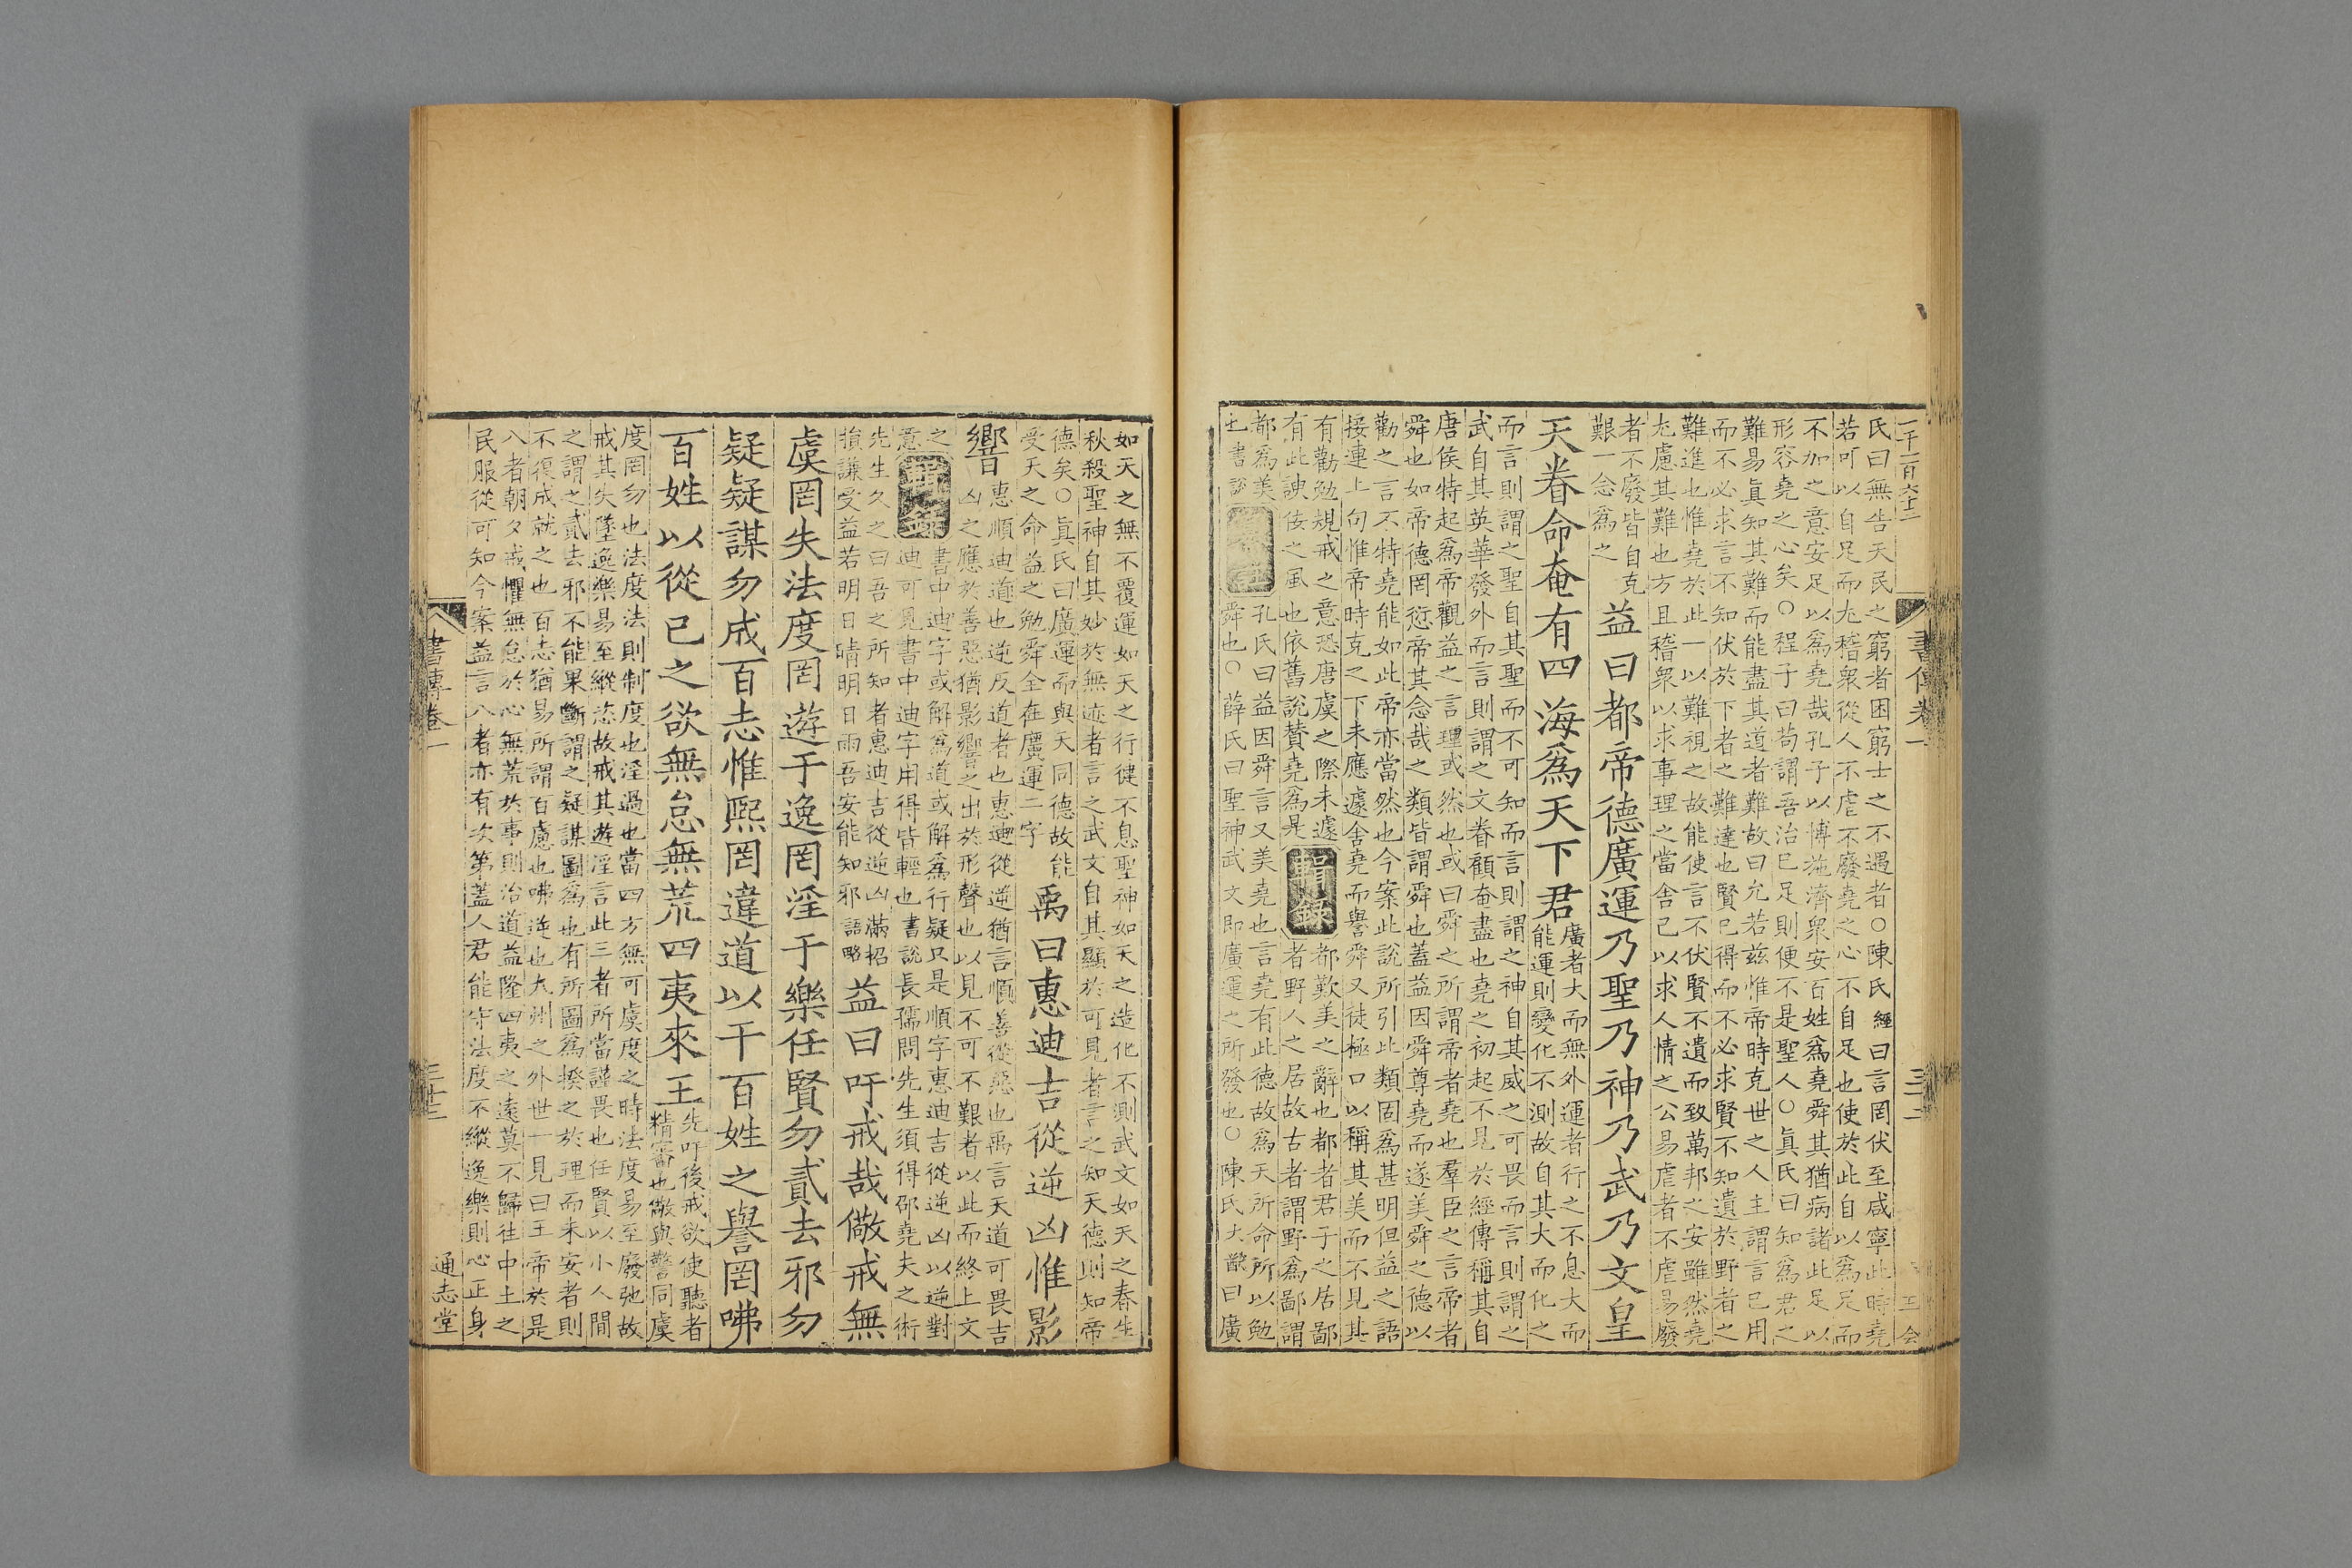 一千二百六十二
氏曰無告天民之窮者困窮士之不遇者○陳氏經曰言罔伏至咸寧此時堯
若可以自足而尤稽衆從人不虐不廢堯之心不自足也使於此自以爲足而
不加之意安足以爲堯哉孔子以博施濟衆安百姓爲堯舜其猶病諸此足以
形容堯之心矣○程子曰苟謂吾治已足則便不是聖人○眞氏曰知爲君之
難易眞知其難而能盡其道者難故曰允若兹惟帝時克世之人主謂言已用
而不必求言不知伏於下者之難達也賢已得而不必求賢不知遺於野者之
難進也惟堯於此一以難視之故能使言不伏賢不遺而致萬邦之安雖然堯
尤慮其難也方且稽衆以求事理之當舍已以求人情之公易虐者不虐易廢
者不廢皆自克
艱一念爲之
益曰都帝德廣運乃聖乃神乃武乃文皇
天眷命奄有四海爲天下君
廣者大而無外運者行之不息大而
能運則變化不測故自其大而化之
而言則謂之聖自其聖而不可知而言則謂之神自其威之可畏而言則謂之
武自其英華發外而言則謂之文眷顧奄盡也堯之初起不見於經傳稱其自
唐侯特起爲帝觀益之言理或然也或曰舜之所謂帝者堯也羣臣之言帝者
舜也如帝德罔愆帝其念哉之類皆謂舜也蓋益因舜尊堯而遂美舜之德以
勸之言不特堯能如此帝亦當然也今案此說所引比類固爲甚明但益之語
接連上句惟帝時克之下未應遽舍堯而譽舜又徒極口以稱其美而不見其
有勸勉規戒之意恐唐虞之際未遽
有此諛佞之風也依舊說贊堯爲是
輯錄
都歎美之辭也都者君子之居鄙
者野人之居故古者謂野爲鄙謂
都爲美
也書說
孔氏曰益因舜言又美堯也言堯有此德故爲天所命所以勉
舜也○薛氏曰聖神武文即廣運之所發也○陳氏大猷曰廣
書傳卷一
如天之無不覆運如天之行健不息聖神如天之造化不測武文如天之春生
秋殺聖神自其妙於無迹者言之武文自其顯於可見者言之知天德則知帝
德矣○眞氏曰廣運而與天同德故能
受天之命益之勉舜全在廣運二字
禹曰惠迪吉從逆凶惟影
響
惠順迪道也逆反道者也惠迪從逆猶言順善從惡也禹言天道可畏吉
凶之應於善惡猶影響之出於形聲也以見不可不艱者以此而終上文
之
意
輯錄
書中迪字或解爲道或解爲行疑只是順字惠迪吉從逆凶以逆對
迪可見書中迪字用得皆輕也書說長孺問先生須得邵堯夫之術
先生久之曰吾之所知者惠迪吉從逆凶滿招
損謙受益若明日晴明日雨吾安能知邪語略
益曰吁戒哉儆戒無
虞罔失法度罔遊于逸罔淫于樂任賢勿貳去邪勿
疑疑謀勿成百志惟熙罔違道以干百姓之譽罔咈
百姓以從已之欲無怠無荒四夷來王
先吁後戒欲使聽者
精審也儆與警同虞
度罔勿也法度法則制度也淫過也當四方無可虞度之時法度易至廢弛故
戒其失墜逸樂易至縱恣故戒其遊淫言此三者所當謹畏也任賢以小人間
之謂之貳去邪不能果斷謂之疑謀圖爲也有所圖爲揆之於理而未安者則
不復成就之也百志猶易所謂百慮也咈逆也九州之外世一見曰王帝於是
八者朝夕戒懼無怠於心無荒於事則治道益隆四夷之遠莫不歸往中土之
民服從可知今案益言八者亦有次第蓋人君能守法度不縱逸樂則心正身
書傳卷一
通志堂